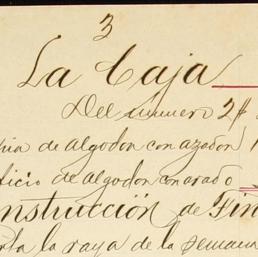 3
La Caja
Del numero 2#
pia de algodon con azadon
ficio de algodon con arado
onstrucción de Fin
rta la raya de la semana